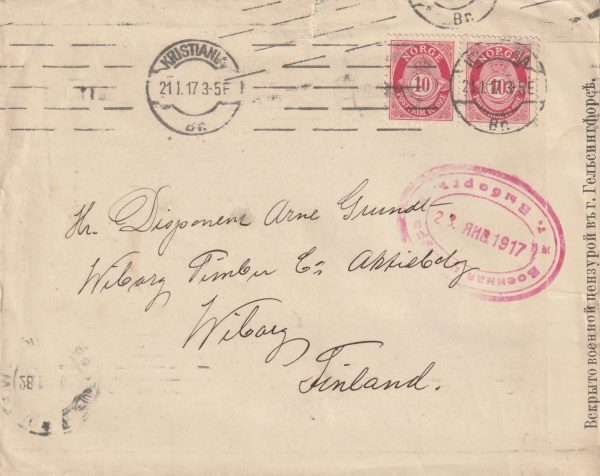 Br.
KRISTIANIA
21 I.17 3-5E
Br.
NORGE
10
NORGE
21 I.17 3-5E
Br.
г. Выборгъ
23 ЯНВ 1917
Военная
Hr. Disponent Arne Grundt
Wiborg Timber Co Aktiebolag
Wiborg
Finland.
28.1
Вскрыто военной цензурой въ г. Гельсингфорсѣ.